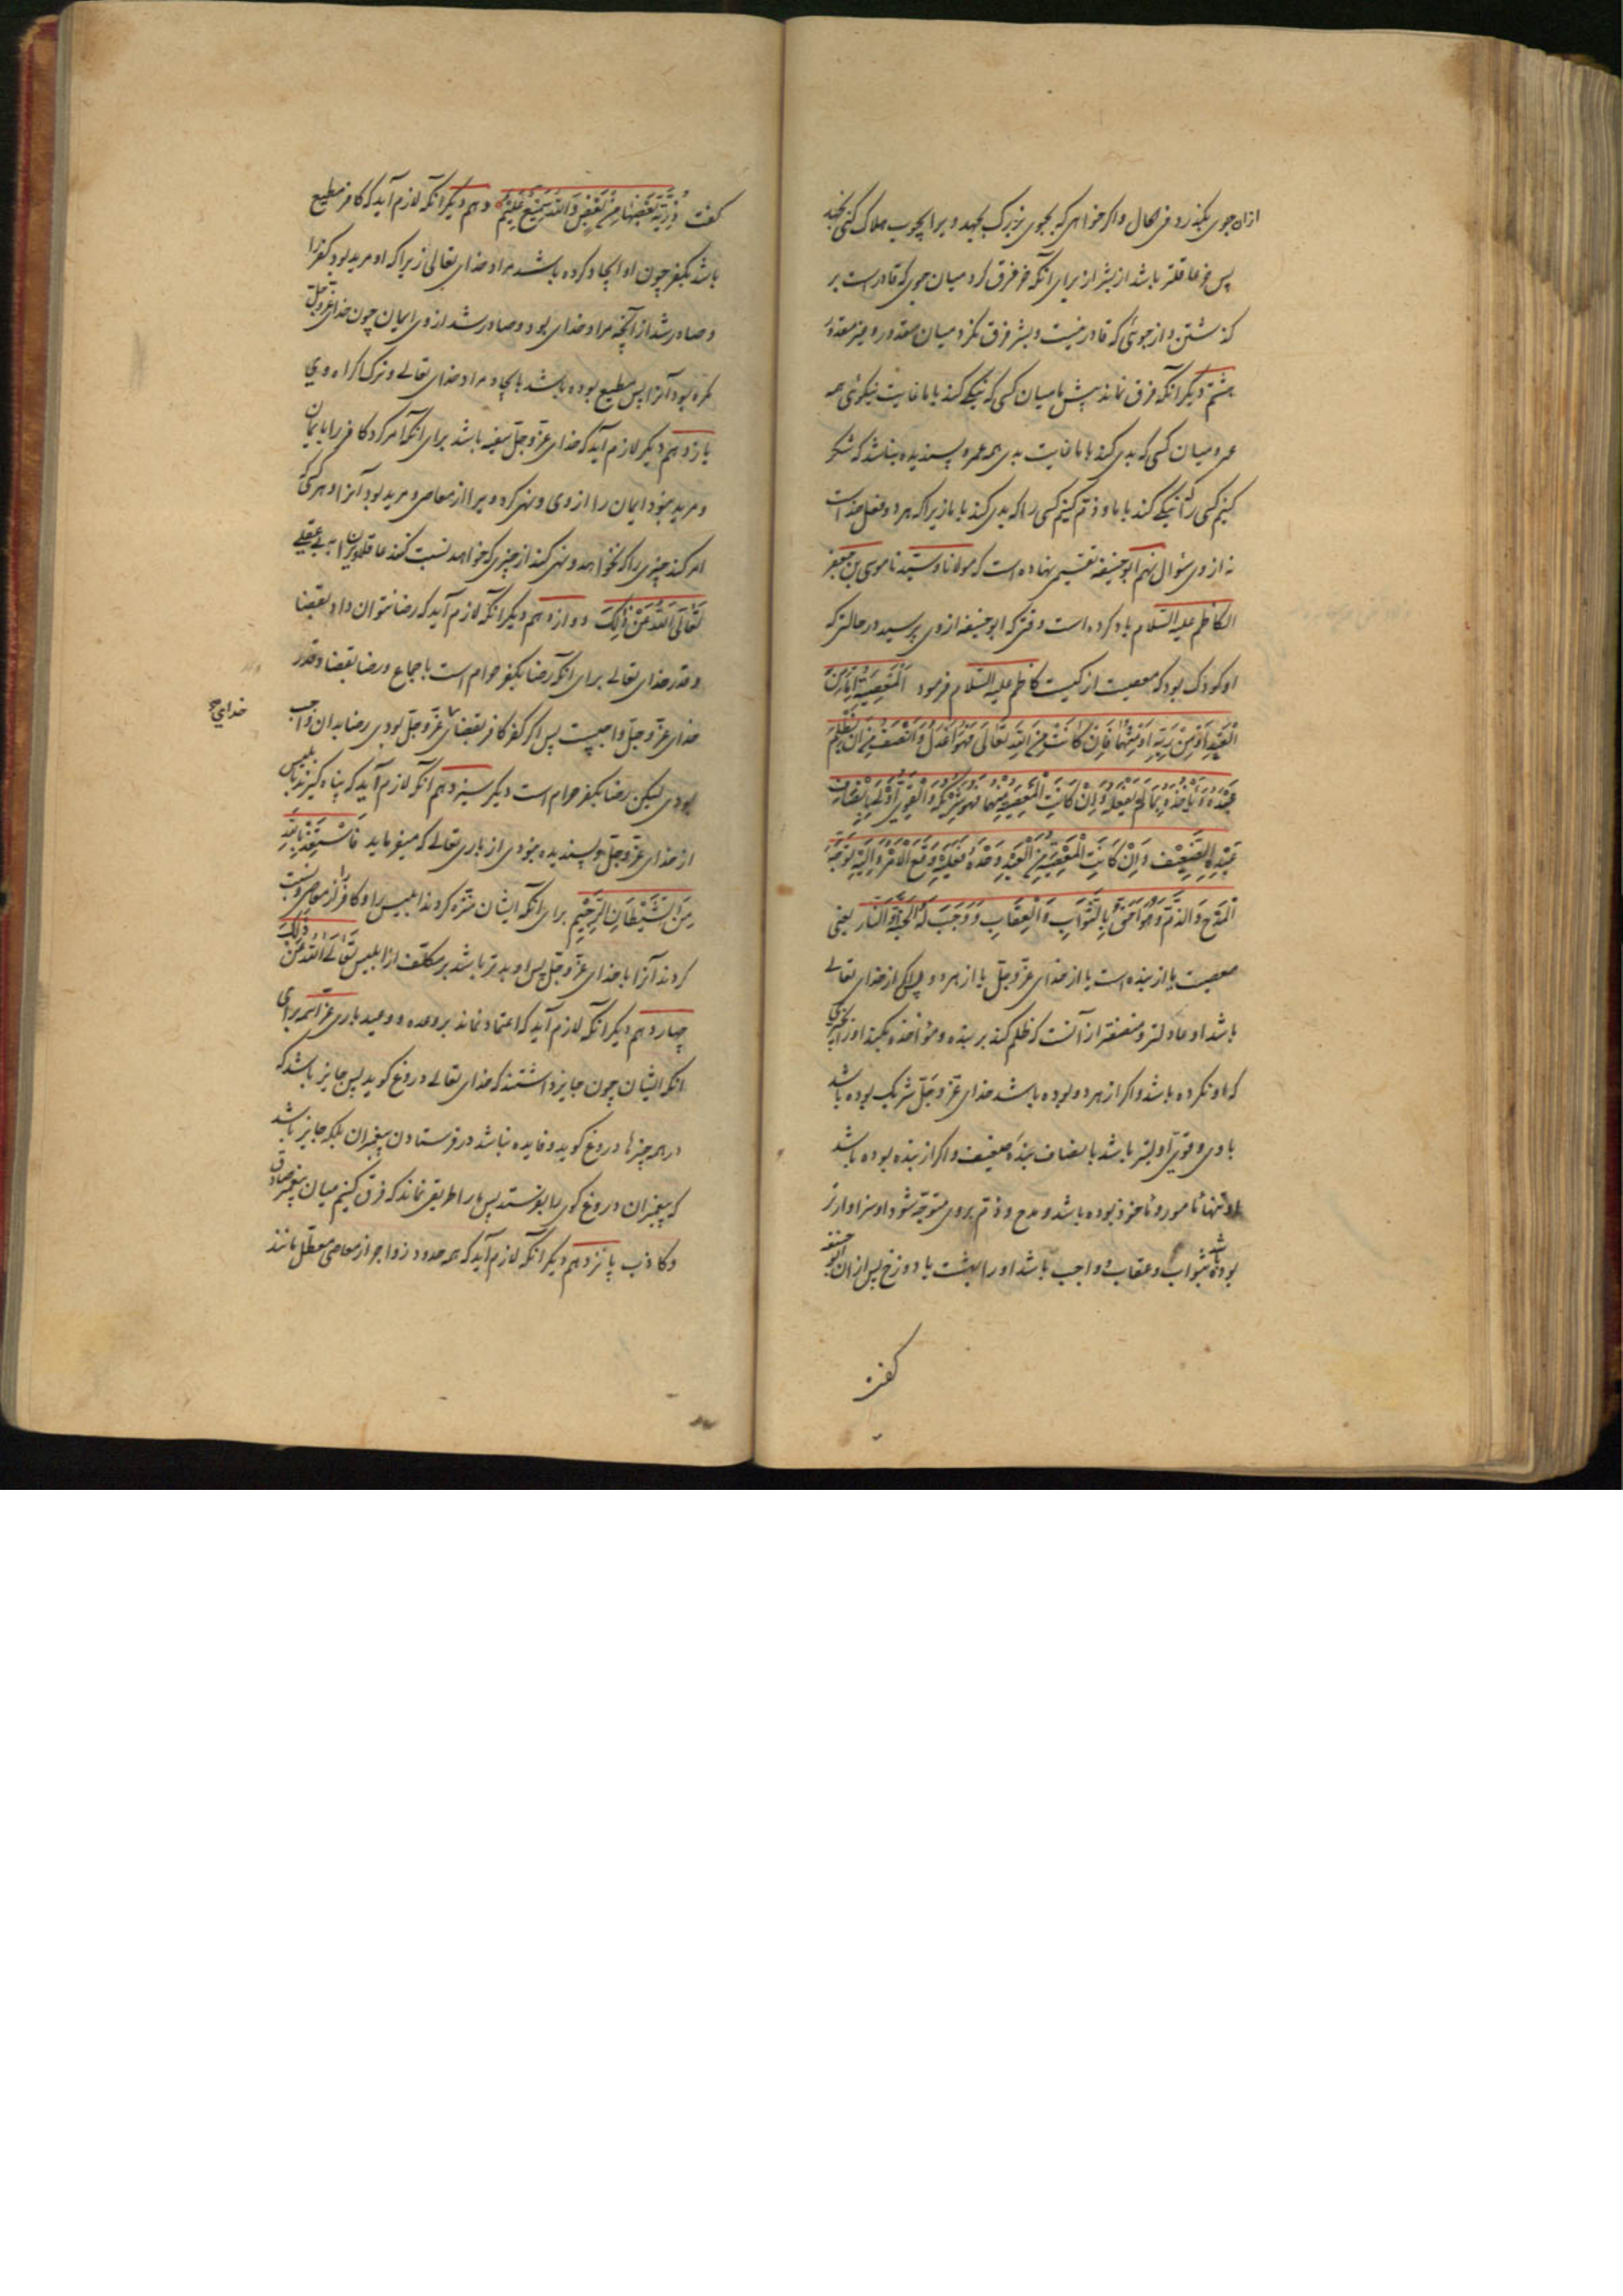 ازان جوی بگذرد فی الحال و اگر خواهی که بجوی بزرگ بجهد ویرا بچوب هلاک کنی نجهد
پس خر عاقلتر باشد از بشر از برای آنکه خر فرق کرد میان جوی که قادرست بر
گذشتن و از جوئی که قادر نیست و بشر فرق نکرد میان مقدور و غیر مقدور
هشتم دیگر آنکه فرق نماند پیش ما میان کسی که نیکی کند با ما غایت نیکوئی همه
عمر و میان کسی که بدی کند با ما غایت بدی همه عمر و پسندیده نباشد که شکر
کنیم کسی را که نیکی کند با ما و ذم کنیم کسی را که بدی کند با ما زیرا که هر دو فعل خداست
نه از وی سؤال نهم ابو حنیفه تقسیمی نهاده است که مولانا و سیدنا موسی بن جعفر
الکاظم علیه السلام یاد کرده است وقتی که ابو حنیفه از وی پرسید در حالتی که
او کودک بود که معصیت از کیست کاظم علیه السلام فرمود اَلْمَعْصِیَةُ اِمّا مِنَ
الْعَبْدِ اَوْ مِنْ رَبِّهِ اَوْ مِنْهُما فَاِنْ کانَتْ مِنَ اللّهِ تَعالی فَهُوَ اَعْدَلُ وَ اَنْصَفُ مِنْ اَنْ یَظْلِمَ
عَبْدَهُ وَ یَأْخُذَهُ بِما لَمْ یَفْعَلْهُ وَ اِنْ کانَتِ الْمَعْصِیَةُ مِنْهُما فَهُوَ شَریکُهُ وَ الْقَوِیُّ اَوْلی بِاِنْصافِ
عَبْدِهِ الضَّعیفِ وَ اِنْ کانَتِ الْمَعْصِیَةُ مِنَ الْعَبْدِ وَحْدَهُ فَعَلَیْهِ وَقَعَ الْاَمْرُ وَ اِلَیْهِ تَوَجَّهَ
الْمَدْحُ وَ الذَّمُّ وَ هُوَ اَحَقُّ بِالثَّوابِ وَ الْعِقابِ وَ وَجَبَ لَهُ الْجَنَّةُ وَ النّارُ یعنی
معصیت یا از بنده است یا از خدای عز و جل یا از هر دو پس اگر از خدای تعالی
باشد او عادلتر و منصفتر از آنست که ظلم کند بر بنده و مؤاخذه بکند او را بچیزی
که او نکرده باشد و اگر از هر دو بوده باشد خدای عز و جل شریک بوده باشد
با وی و قوی اولیتر باشد بانصاف بنده ضعیف و اگر از بنده بوده باشد
او تنها مامور و ماخوذ بوده باشد و مدح و ذم بروی متوجه شود او سزاوارتر
بوده باشد بثواب و عقاب و واجب باشد او را بهشت یا دوزخ پس ازان ابو حنیفه
کفت
کفت ذُرِّیَّةً بَعْضُها مِنْ بَعْضٍ وَ اللّهُ سَمیعٌ عَلیمٌ دهم دیگر آنکه لازم آید که کافر مطیع
باشد بکفر چون او ایجاد کرده باشد مراد خدای تعالی زیرا که او مرید بود کفر را
و صادر شد از آنچه مراد خدای بود و صادر نشد از وی ایمان چون خدای عز و جل
کاره بود آنرا پس مطیع بوده باشد بایجاد مراد خدای تعالی و ترک اکراه وی
یازدهم دیگر لازم آید که خدای عز و جل سفیه باشد برای آنکه امر کرد کافر را بایمان
و مرید نبود ایمان را از وی و نهی کرد ویرا از معاصی و مرید بود آنرا و هر کسی که
امر کند چیزی را که نخواهد و نهی کند از چیزی که خواهد نسبت کنند عاقلان ویرا به بی عقلی
تَعالَی اللّهُ عَنْ ذلِکَ دوازدهم دیگر آنکه لازم آید که رضا نتوان داد بقضا
و قدر خدای تعالی برای آنکه رضا بکفر حرام است باجماع و رضا بقضا و قدر
خدای عز و جل واجبست پس اگر کفر کافر بقضای عز و جل بودی رضا بدان واجب
خدایی
بودی لیکن رضا بکفر حرام است دیگر سیزدهم آنکه لازم آید که پناه گیرند بابلیس
از خدای عز و جل و پسندیده نبودی از باری تعالی که میفرماید فَاسْتَعِذْ بِاللّهِ
مِنَ الشَّیْطانِ الرَّجیمِ برای آنکه ایشان منزه کردند ابلیس را و کافر را از معاصی و نسبت
کردند آنرا با خدای عز و جل پس او بدتر باشد بر مکلف از ابلیس تَعالَی اللّهُ عَنْ ذلِکَ
چهاردهم دیگر آنکه لازم آید که اعتماد نماند بر وعده و وعید باری عز اسمه برای
آنکه ایشان چون جایز داشتند که خدای تعالی دروغ گوید پس جایز باشد که
در همه چیزها دروغ گوید و فایده نباشد در فرستادن پیغمبران بلکه جایز باشد
که پیغمبران دروغ گوی را بفرستد پس ما را طریقی نماند که فرق کنیم میان پیغمبر صادق
و کاذب پانزدهم دیگر آنکه لازم آید که همه حدود زواجر از معاصی معطل مانند